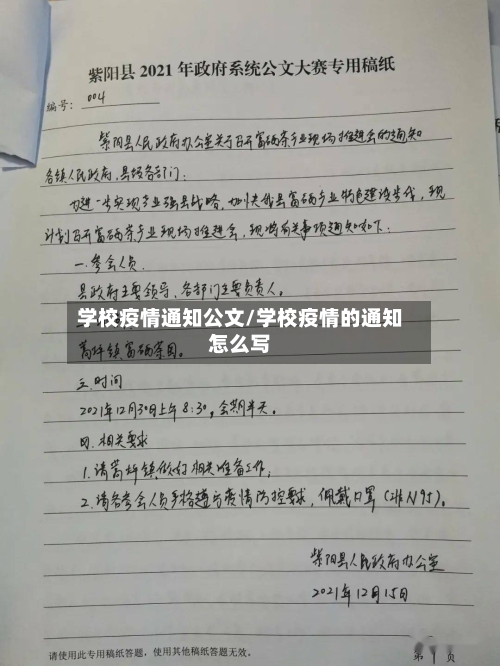 紫阳县 2021 年政府系统公文大赛专用稿纸
编号: 004
紫阳县人民政府办公室关于召开富硒茶产业现场推进会的通知
各镇人民政府,县级各部门:
为进一步实现产业强县战略,加快我县富硒产业特色建设步伐,现
计划召开富硒茶产业现场推进会,现将有关事项通知如下:
一.参会人员
县政府主要领导、各部门主要负责人。
学校疫情通知公文/学校疫情的通知
怎么写
蒿坪镇富硒茶园。
三.时间
2021年12月30日上午8:30,会期半天。
四.相关要求
1.请蒿坪镇做好相关准备工作;
2.请各参会人员严格遵守疫情防控要求,佩戴口罩(非N95)。
紫阳县人民政府办公室
2021年12月15日
请使用此专用稿纸答题,使用其他稿纸答题无效。
第 1 页